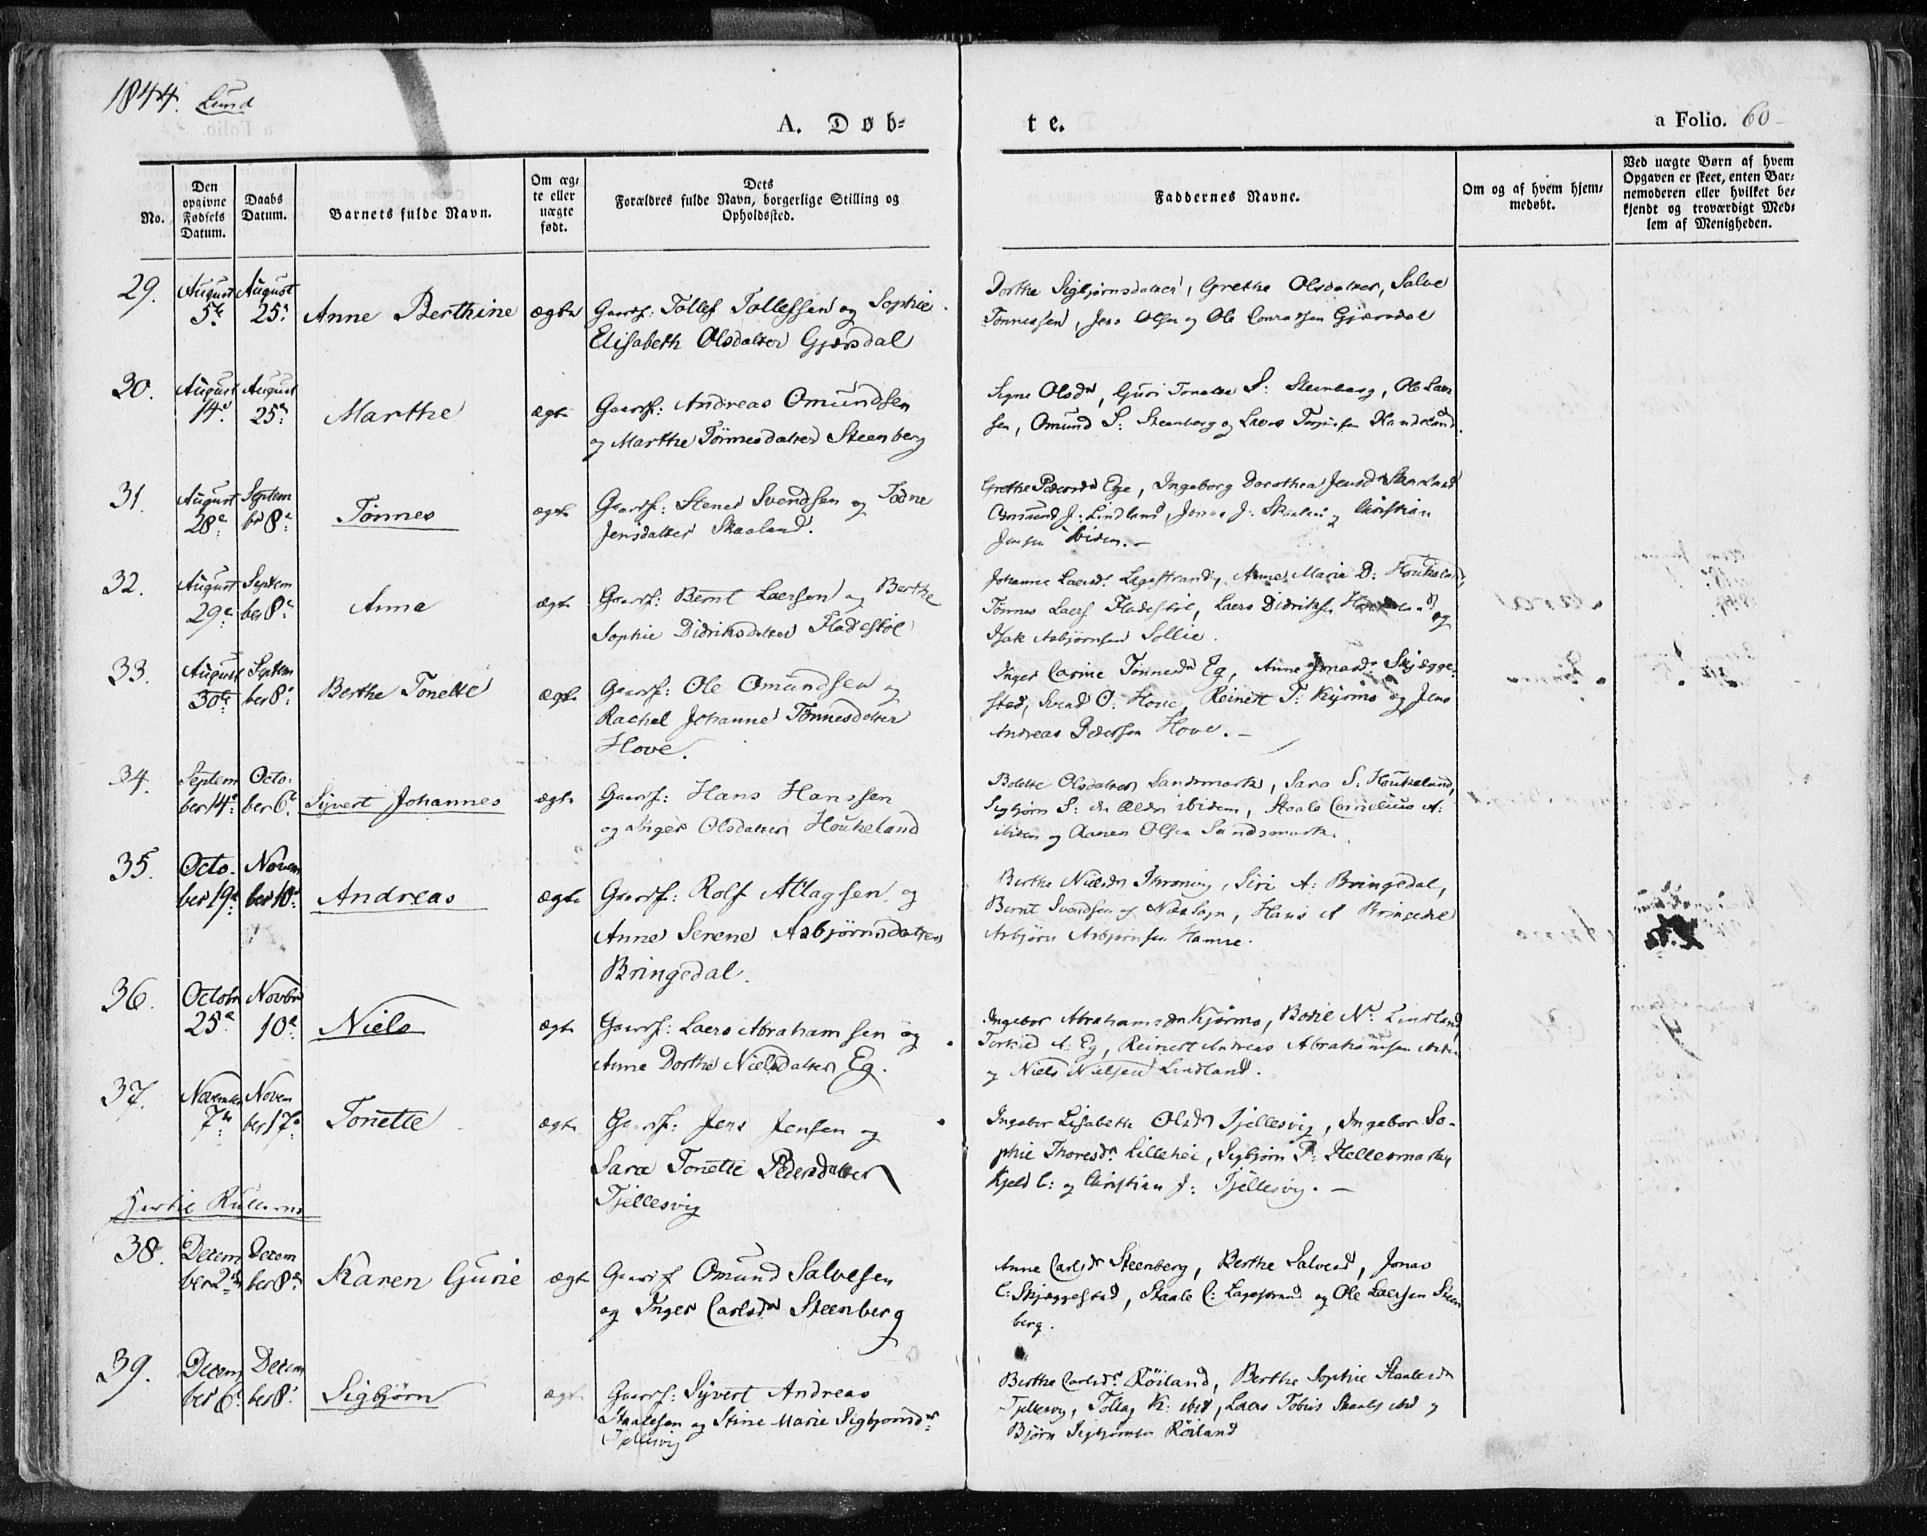 1844. Lund
A. Døb-
te.
a Folio. 60
No.
Den
opgivne
Fødsels
Datum.
Daabs
Datum.
Barnets fulde Navn.
Om æg-
te eller
uægte
født.
Dets
Forældres fulde Navn, borgerlige Stilling og
Opholdssted.
Faddernes Navne.
Om og af hvem hjem-
medøbt.
Ved uægte Børn af hvem
Opgaven er skeet, enten Bar-
nemoderen eller hvilket be-
kjendt og troværdigt Med-
lem af Menigheden.
29.
August
5te
August
25.
Anne Berthine
ægte
Gaardf: Tollef Tollefsen og Sophie
Elisabeth Olsdatter Gjersdal
Dorthe Sigbjørnsdatter, Grethe Olsdatter, Salve
Tønnessen, Jens Olsen og Ole Gjersdal
30.
August
14.
August
25.
Marthe
ægte
Gaardf: Andreas Omundsen
og Marthe Tønnesdatter Steenberg
Signe Olsdr, Guri S: Steenberg, Ole Laer-
sen, Omund S: Steenberg og Laers
31.
August
28.
Septem
br 8.
Tønnes
ægte
Gaardf: Stener Svendsen og Tødne
Jensdatter Skaaland.
Grethe Ege, Ingeborg Dorothea Jensdr Skaaland
J: Lindland, Jonas J: og Christian
Jensen
32.
August
29.
Septem
ber 8.
Anna
ægte
Gaardf: Bernt Laersen og Berthe
Sophie Didriksdatter Fladestøl
Johanne Laersdr Legestrand, Anne Maria D: Houkeland,
Tønnes Laers Fladestøl, Laers Didriksen og
Isak Asbjørnsen Sollie.
33.
August
30te
Septem
ber 8.
Berthe Tonette
ægte
Gaardf: Ole Omundsen og
Rachel Johanne Tønnesdatter
Hove.
Inger Carine Tønnesdr Eg, Anne Jonasdr Skjægge-
sted, Svend O. Hove, Reinert T: Kjørmo og Jens
Andreas Pedersen Hove.
34.
Septem
ber 14.
Octo:
ber 6.
Sijvert Johannes
ægte
Gaardf: Hans Hanssen
og Inger Olsdatter Houkeland
Bolette Olsdatter Sandsmark, Sara S. Houkeland,
Sigbjørn S: den Ældre, Staale Cornelius A.
og Olsen Sandsmark.
35.
Octo-
ber 19.
Novem
ber 10.
Andreas
ægte
Gaardf: Rolf Atlagsen og
Anne Serene Asbjørnsdatter
Bringedal.
Berthe Nielsdr, Siri A: Bringedal,
Bernt Svendsen af Sogn, Hans A Bringedal
Asbjørn Asbjørnsen Hamre.
36.
Octobr
25.
Novbr
10.
Niels
ægte
Gaardf: Laers Abrahamsen og
Anne Dorthe Nielsdatter Eg.
Ingebor Abrahamsdr Kjørmo, Bodil N. Lindland,
Torkild A: Eg, Reinert Andreas Abrahamsen
og Niels Nielsen Lindland.
37.
November
7de
Novem
ber 17.
Tonette
ægte
Gaardf: Jens Jensen og
Sara Tonette Pedersdatter
Tjellesvig
Ingebor Lisabeth Olsdr Tjellesvig, Ingebor So-
phie Thoresdr Lillehei, Sigbjørn P: Hellesmark,
Kjeld C: og Christian J: Tjellesvig.
38.
Decem
ber 2den
Decem
ber 8de
Karen Gurie
ægte
Gaardf Omund Salvesen
og Inger Carlsdr Steenberg
Anne Carlsdr Steenberg, Berthe Salvesd, Jonas
C: Skjæggestad, Staale C: Legestrand og Ole Laersen Steen-
berg.
39.
Decem
ber 6.
Decem
ber 8.
Sigbjørn
ægte
Gaardf: Sijvert Andreas
Staalesen og Stine Marie Sigbjørnsdr
Tjellesvig
Berthe Carlsdr Röiland, Berthe Sophie Staalesdr
Tjellesvig, Tollag K: ibid, Laers Tobias Staales ibid og
Bjørn Sigbjørnsen Röiland